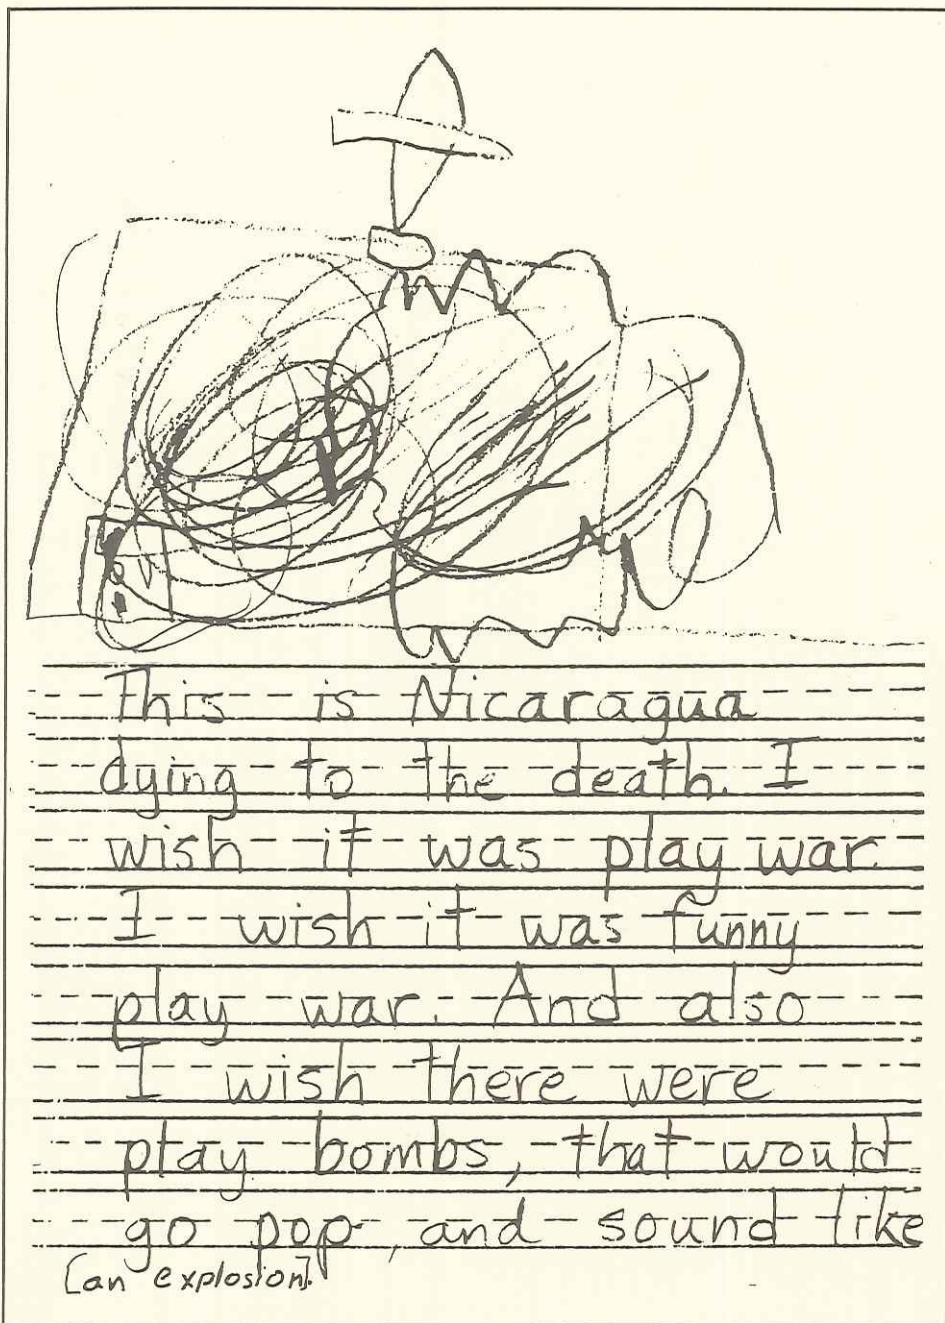 This is Nicaragua
dying to the death. I
wish it was play war.
I wish it was funny
play war. And also
I wish there were
play bombs, that would
go pop, and sound like
[an explosion].